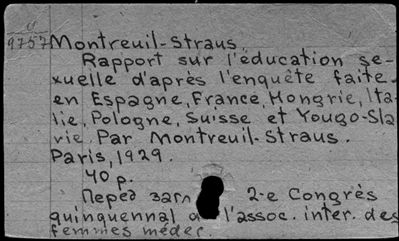 9757 Montreuil-Straus
Rapport sur l'éducation se-
xuelle d'après l'enquête faite
en Espagne, France, Hongrie, Ita-
lie, Pologne, Suisse et Yougo-Sla
vie. Par Montreuil-Straus.
Paris, 1929.
40 p.
Перед загл 2-e Congrès
quinquennal l'assoc. inter. des
femmes médec.